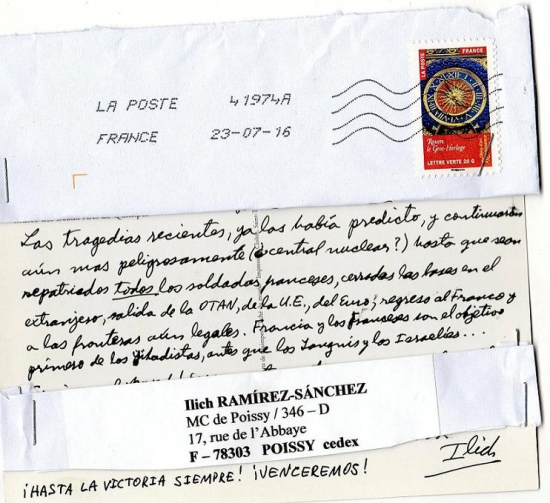 LA POSTE 41974A
FRANCE 23-07-16
LA POSTE FRANCE
Rouen
le Gros-Horloge
LETTRE VERTE 20 G
Las tragedias recientes, ya las había predicto, y continuarán
aún mas peligrosamente (¿central nuclear?) hasta que sean
repatriados todos los soldados franceses, cerradas las bases en el
extranjero, salida de la OTAN, de la U.E., del Euro; regreso al Franco y
a las fronteras aún legales. Francia y los franceses son el objetivo
primero de los Jihadistas, antes que los Yanquis y los Israelíes...
Ilich RAMÍREZ-SÁNCHEZ
MC de Poissy / 346 – D
17, rue de l'Abbaye
F – 78303 POISSY cedex
Ilich
¡HASTA LA VICTORIA SIEMPRE! ¡VENCEREMOS!